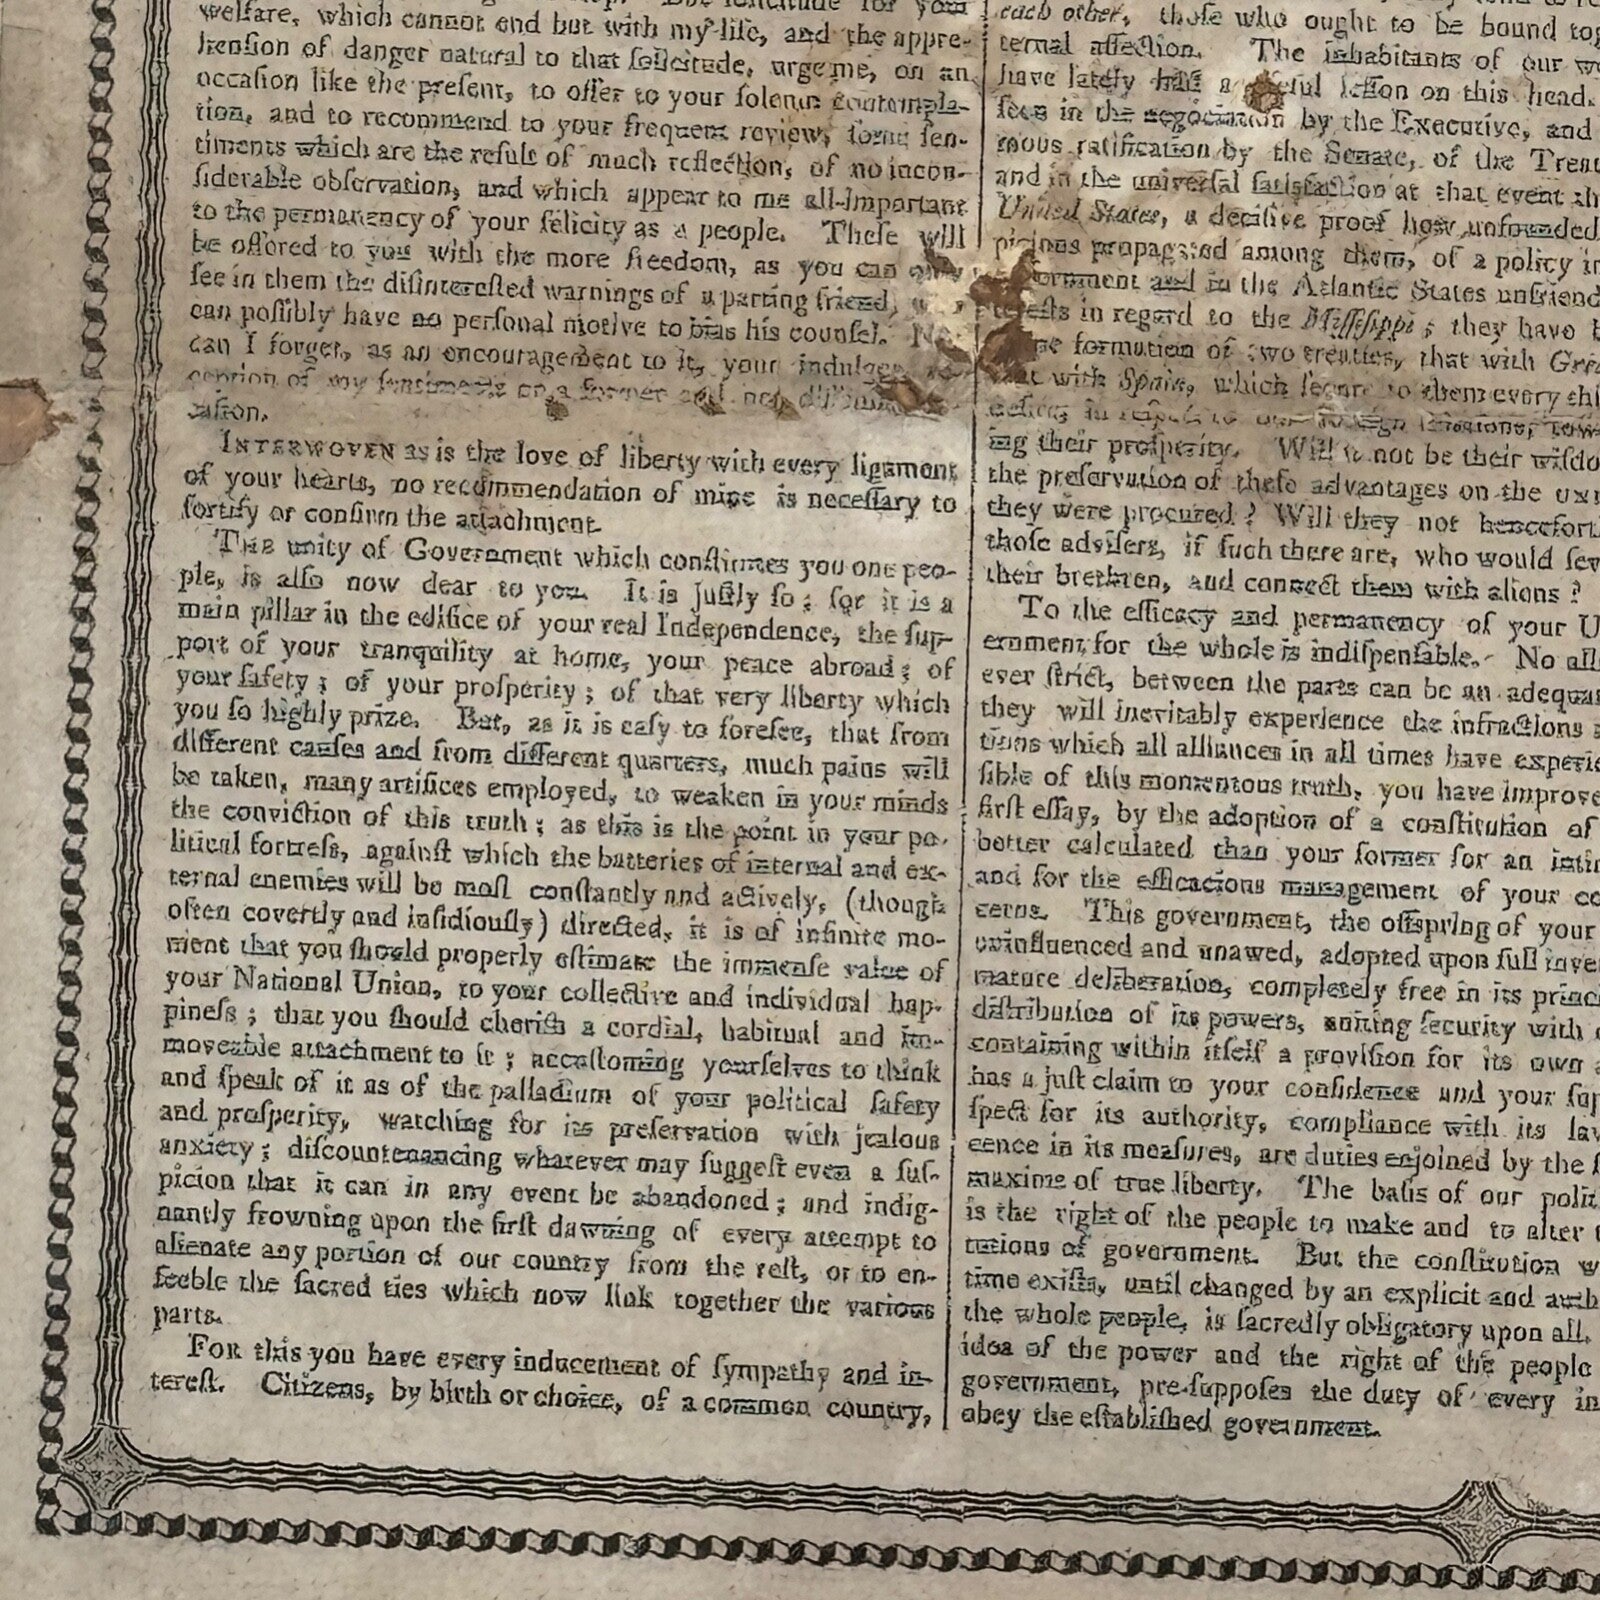 welfare, which cannot end but with my life, and the appre-
henſion of danger natural to that ſolicitude, urge me, on an
occaſion like the preſent, to offer to your ſolemn contempla-
tion, and to recommend to your frequent review, ſome ſen-
timents which are the reſult of much reflection, of no incon-
ſiderable obſervation, and which appear to me all-important
to the permanency of your felicity as a people. Theſe will
be offered to you with the more freedom, as you can only
ſee in them the diſintereſted warnings of a parting friend,
can poſſibly have no perſonal motive to bias his counſel.
can I forget, as an encouragement to it, your
ception of my ſentiments on a former and not
caſion.
INTERWOVEN as is the love of liberty with every ligament
of your hearts, no recommendation of mine is neceſſary to
fortify or confirm the attachment.
THE unity of Government which conſtitutes you one peo-
ple, is alſo now dear to you. It is juſtly ſo; for it is a
main pillar in the edifice of your real Independence, the ſup-
port of your tranquility at home, your peace abroad; of
your ſafety; of your proſperity; of that very liberty which
you ſo highly prize. But, as it is eaſy to foreſee, that from
different cauſes and from different quarters, much pains will
be taken, many artifices employed, to weaken in your minds
the conviction of this truth; as this is the point in your po-
litical fortreſs, againſt which the batteries of internal and ex-
ternal enemies will be moſt conſtantly and actively, (though
often covertly and inſidiouſly) directed, it is of infinite mo-
ment that you ſhould properly eſtimate the immenſe value of
your National Union, to your collective and individual hap-
pineſs; that you ſhould cheriſh a cordial, habitual and im-
moveable attachment to it; accuſtoming yourſelves to think
and ſpeak of it as of the palladium of your political ſafety
and proſperity, watching for its preſervation with jealous
anxiety; diſcountenancing whatever may ſuggeſt even a ſuſ-
picion that it can in any event be abandoned; and indig-
nantly frowning upon the firſt dawning of every attempt to
alienate any portion of our country from the reſt, or to en-
feeble the ſacred ties which now link together the various
parts.
FOR this you have every inducement of ſympathy and in-
tereſt. Citizens, by birth or choice, of a common country,
each other, thoſe who ought to be bound
ternal affection. The inhabitants of our
have lately had a uſeful leſſon on this head.
ſeen in the negociation by the Executive, and
mous ratification by the Senate, of the
and in the univerſal ſatisfaction at that event
United States, a deciſive proof how unfounded
picions propagated among them, of a policy in
and in the Atlantic States
in regard to the Miſſiſippi; they have
formation of two treaties, that with
with Spain, which ſecure to them every
ing their proſperity. Will it not be their
the preſervation of theſe advantages on the
they were procured? Will they not
thoſe adviſers, if ſuch there are, who would
their brethren, and connect them with aliens?
To the efficacy and permanency of your
ernment for the whole is indiſpenſable. No
ever ſtrict, between the parts can be an
they will inevitably experience the infractions
tions which all alliances in all times have
ſible of this momentous truth, you have
firſt eſſay, by the adoption of a conſtitution of
better calculated than your former for an
and for the efficacious management of your
cerns. This government, the offspring of your
uninfluenced and unawed, adopted upon full
mature deliberation, completely free in its
diſtribution of its powers, uniting ſecurity with
containing within itſelf a proviſion for its own
has a juſt claim to your confidence and your
ſpect for its authority, compliance with its
cence in its meaſures, are duties enjoined by the
maxims of true liberty. The baſis of our
is the right of the people to make and to alter
tutions of government. But the conſtitution
time exiſts, until changed by an explicit and
the whole people, is ſacredly obligatory upon all.
idea of the power and the right of the people
government, pre-ſuppoſes the duty of every
obey the eſtabliſhed government.